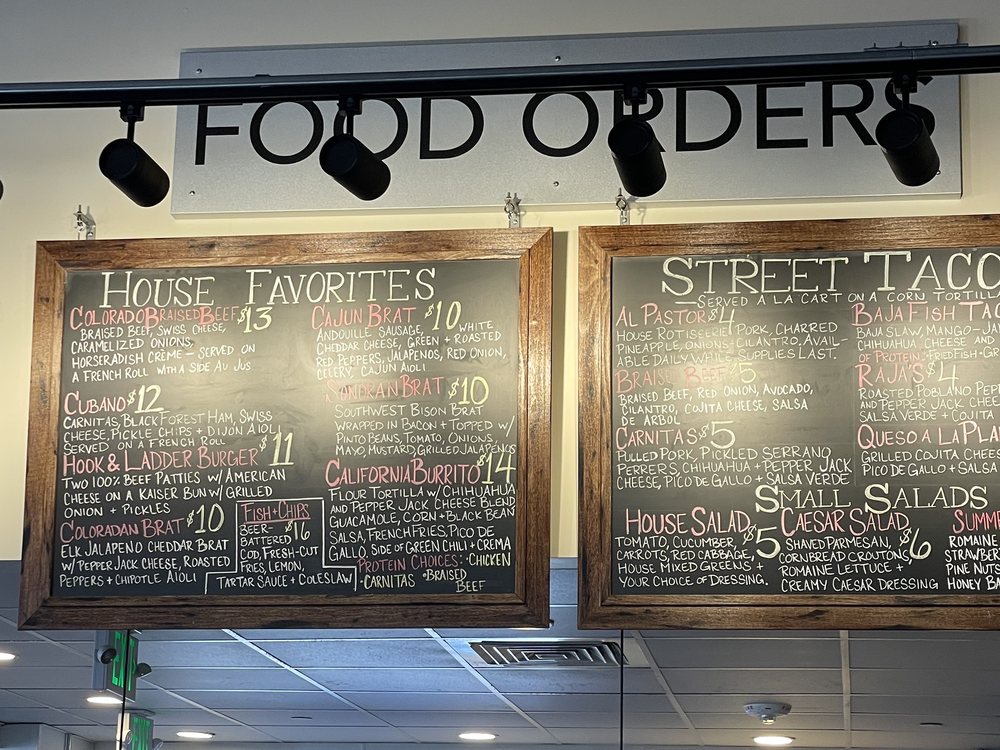 FOOD ORDERS
HOUSE FAVORITES
COLORADO BRAISED BEEF $13
BRAISED BEEF, SWISS CHEESE,
CARAMELIZED ONIONS,
HORSERADISH CRÈME - SERVED ON
A FRENCH ROLL WITH A SIDE AU JUS
CUBANO $12
CARNITAS, BLACK FOREST HAM, SWISS
CHEESE, PICKLE CHIPS + DIJON AIOLI
SERVED ON A FRENCH ROLL
HOOK & LADDER BURGER $11
TWO 100% BEEF PATTIES W/ AMERICAN
CHEESE ON A KAISER BUN W/ GRILLED
ONION + PICKLES
COLORADAN BRAT $10
ELK JALAPENO CHEDDAR BRAT
W/ PEPPER JACK CHEESE, ROASTED
PEPPERS + CHIPOTLE AIOLI
FISH + CHIPS
BEER- $16
BATTERED
COD, FRESH-CUT
FRIES, LEMON,
TARTAR SAUCE + COLESLAW
CAJUN BRAT $10
ANDOUILLE SAUSAGE, WHITE
CHEDDAR CHEESE, GREEN + ROASTED
RED PEPPERS, JALAPENOS, RED ONION,
CELERY, CAJUN AIOLI
SONORAN BRAT $10
SOUTHWEST BISON BRAT
WRAPPED IN BACON + TOPPED W/
PINTO BEANS, TOMATO, ONIONS,
MAYO, MUSTARD, GRILLED JALAPEÑOS
CALIFORNIA BURRITO $14
FLOUR TORTILLA W/ CHIHUAHUA
AND PEPPER JACK CHEESE BLEND
GUACAMOLE, CORN + BLACK BEAN
SALSA, FRENCH FRIES, PICO DE
GALLO, SIDE OF GREEN CHILI + CREMA
PROTEIN CHOICES: ·CHICKEN
·CARNITAS ·BRAISED
BEEF
STREET TACO
SERVED A LA CART ON A CORN TORTILL
AL PASTOR $4
HOUSE ROTISSERIE PORK, CHARRED
PINEAPPLE, ONIONS + CILANTRO, AVAIL-
ABLE DAILY WHILE SUPPLIES LAST.
BRAISED BEEF $5
BRAISED BEEF, RED ONION, AVOCADO,
CILANTRO, COJITA CHEESE, SALSA
DE ARBOL
CARNITAS $5
PULLED PORK, PICKLED SERRANO
PERRERS, CHIHUAHUA + PEPPER JACK
CHEESE, PICO DE GALLO + SALSA VERDE
BAJA FISH TAC
BAJA SLAW, MANGO-JA
CHIHUAHUA CHEESE AND
OF PROTEIN: ·FRIED FISH ·GR
RAJA'S $4
ROASTED POBLANO PEPP
AND PEPPER JACK CHEE
SALSA VERDE + COJITA
QUESO A LA PLA
GRILLED COJITA CHEES
PICO DE GALLO + SALSA
SMALL SALADS
HOUSE SALAD $5
TOMATO, CUCUMBER,
CARROTS, RED CABBAGE,
HOUSE MIXED GREENS +
YOUR CHOICE OF DRESSING.
CAESAR SALAD $6
SHAVED PARMESAN,
CORNBREAD CROUTONS,
ROMAINE LETTUCE +
CREAMY CAESAR DRESSING
SUMME
ROMAINE
STRAWBER
PINE NUTS
HONEY BA